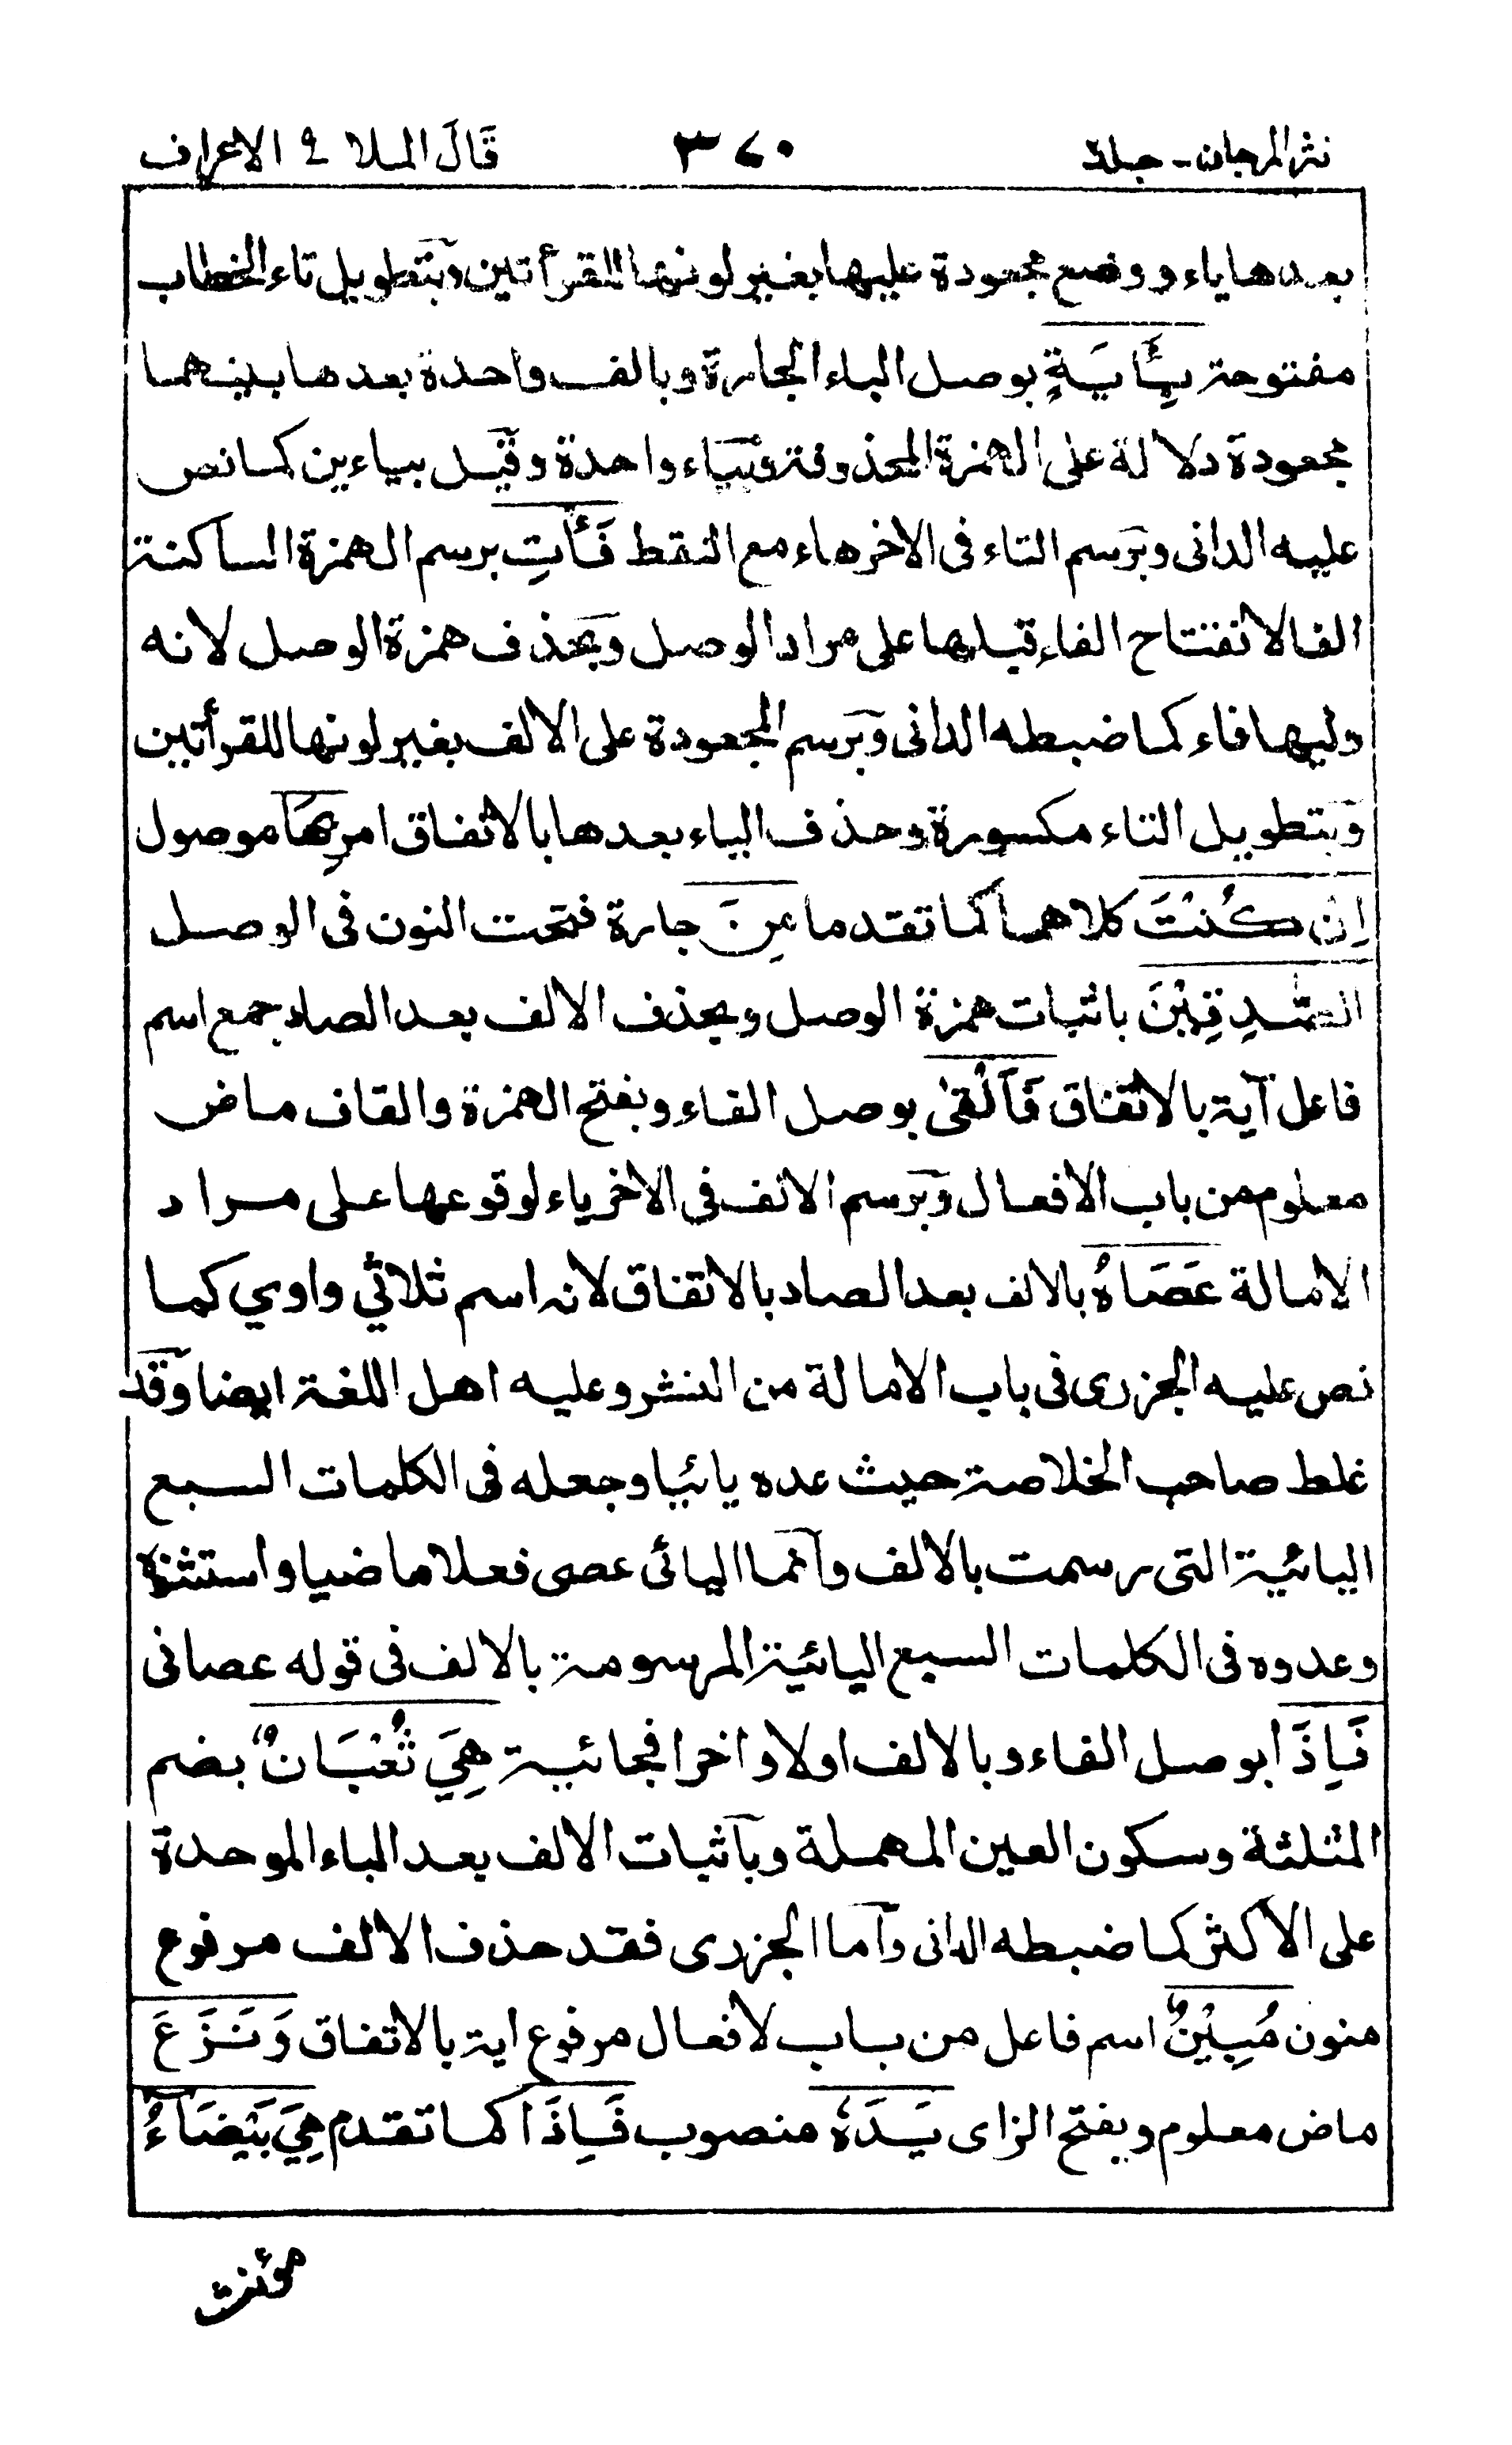 نثر المرجان - جلد٢ ٣٧٠ قَالَ الملا ٩ الاعراف
بعدها ياء ووضع مجعودة عليها بغير لونها للقرأتين وبتطويل تاء الخطاب
مفتوحة بِـَٔايَةٍ بوصل الباء الجارة وبالف واحدة بعدها بينهما
مجعودة دلالة على الهمزة المحذوفة وبياء واحدة وقيل بياءين كما نص
عليه الدانى وبرسم التاء فى الاخر هاء مع النقط فَأْتِ برسم الهمزة الساكنة
الفا لانفتاح الفاء قبلها على مراد الوصل وبحذف همزة الوصل لانه
وليها فاء كما ضبطه الدانى وبرسم المجعودة على الالف بغير لونها للقرأتين
وبتطويل التاء مكسورة وحذف الياء بعدها بالاتفاق امر بِهَآ موصول
اِنْ كُنْتَ كلاهما كما تقدما مِنَ جارة فتحت النون فى الوصل
الصّٰدِقِيْنَ باثبات همزة الوصل وبحذف الالف بعد الصاد جمع اسم
فاعل آية بالاتفاق فَاَلْقٰى بوصل الفاء وبفتح الهمزة والقاف ماض
معلوم من باب الافعال وبرسم الالف فى الاخر ياء لوقوعها على مراد
الامالة عَصَاهُ بالالف بعد الصاد بالاتفاق لانه اسم ثلاثي واوي كما
نص عليه الجزرى فى باب الامالة من النشر وعليه اهل اللغة ايضا وقد
غلط صاحب الخلاصة حيث عده يائيا وجعله فى الكلمات السبع
اليائية التى رسمت بالالف وانما اليائى عصى فعلا ماضيا واستثنوه
وعدوه فى الكلمات السبع اليائية المرسومة بالالف فى قوله عصانى
فَاِذَا بوصل الفاء وبالالف اولا واخرا فجائية هِيَ ثُعْبَانٌ بضم
المثلثة وسكون العين المهملة وباثبات الالف بعد الباء الموحدة
على الاكثر كما ضبطه الدانى واما الجزرى فقد حذف الالف مرفوع
منون مُبِيْنٌ اسم فاعل من باب لافعال مرفوع اية بالاتفاق وَنَزَعَ
ماض معلوم وبفتح الزاى يَدَهٗ منصوب فَاِذَا كما تقدم هِيَ بَيْضَآءُ
مؤنث